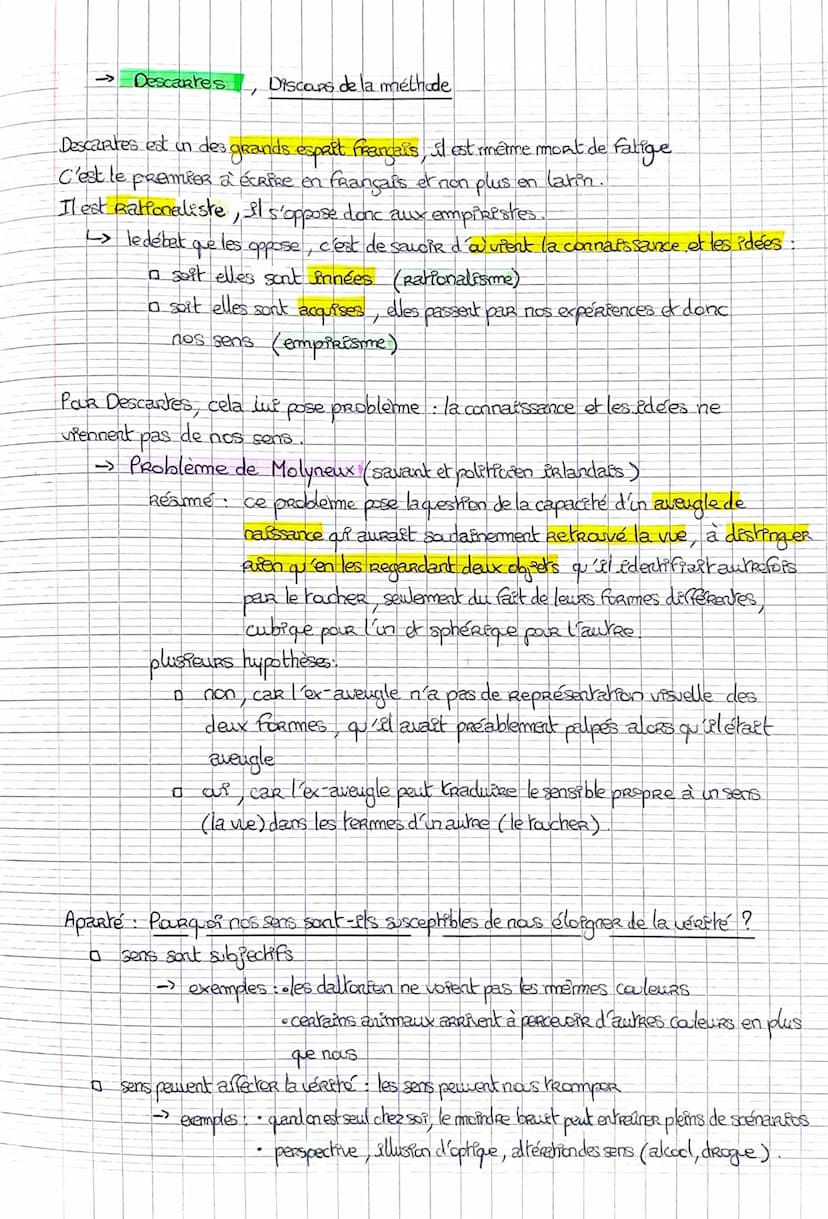 → Descartes, Discours de la méthode
Descartes est un des grands esprit français, il est même mort de fatige
C'est le premier à écrire en français et non plus en latin.
Il est rationaliste, il s'oppose donc aux empiristes.
↳ le débat que les oppose, c'est de savoir d'où vient la connaissance et les idées :
▫ soit elles sont innées (rationalisme)
▫ soit elles sont acquises, elles passent par nos expériences et donc
nos sens (empirisme)
Pour Descartes, cela lui pose problème : la connaissance et les idées ne
viennent pas de nos sens.
→ Problème de Molyneux (savant et politicien irlandais)
Résumé : ce problème pose la question de la capacité d'un aveugle de
naissance qui aurait soudainement retrouvé la vue, à distinger
rien qu'en les regardant deux objets qu'il identifiait autrefois
par le toucher, seulement du fait de leurs formes différentes,
cubique pour l'un et sphérique pour l'autre.
plusieurs hypothèses :
▫ non, car l'ex-aveugle n'a pas de représentation visuelle des
deux formes, qu'il avait préablement palpés alors qu'il était
aveugle
▫ oui, car l'ex-aveugle peut traduire le sensible propre à un sens
(la vue) dans les termes d'un autre (le toucher).
Aparté : Pourquoi nos sens sont-ils susceptibles de nous éloigner de la vérité ?
▫ sens sont subjectifs
→ exemples : • les daltonien ne voient pas les mêmes couleurs
• certains animaux arrivent à percevoir d'autres couleurs en plus
que nous
▫ sens peuvent affecter la vérité : les sens peuvent nous tromper
→ exemples : • quand on est seul chez soi, le moindre bruit peut entraîner pleins de scénarios
• perspective, illusion d'optique, altération des sens (alcool, drogue).